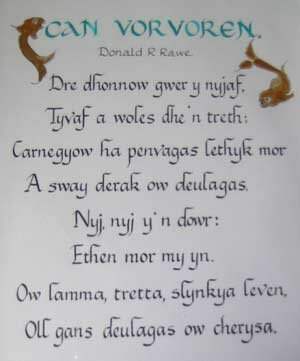 CAN VORVOREN.
Donald R Rawe.
Dre dhonnow gwer y nyjaf,
Tyvaf a woles dhe'n treth;
Carnegyow ha penvagas lethyk mor
A sway derak ow deulagas.
Nyj, nyj y'n dowr:
Ethen mor my yn.
Ow lamma, tretta, slynkya leven,
Oll gans deulagas ow cherysa.